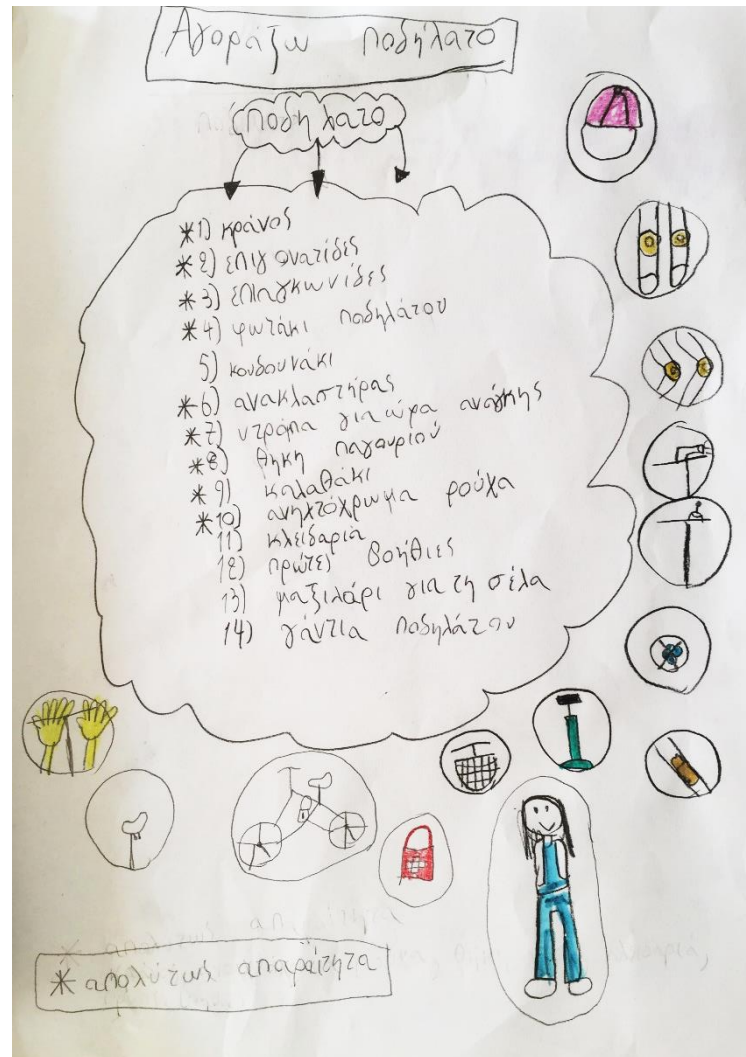 Αγοράζω ποδήλατο
ποδήλατο
*1) κράνος
*2) επιγονατίδες
*3) επιαγκωνίδες
*4) φωτάκι ποδηλάτου
5) κουδουνάκι
*6) ανακλαστήρας
*7) ντρόμπα για ώρα ανάγκης
*8) θήκη παγουριού
*9) καλαθάκι
*10) ανηχτόχρωμα ρούχα
11) κλειδαριά
12) πρώτες βοήθιες
13) μαξιλάρι για τη σέλα
14) γάντια ποδηλάτου
* απολύτως απαραίτητα